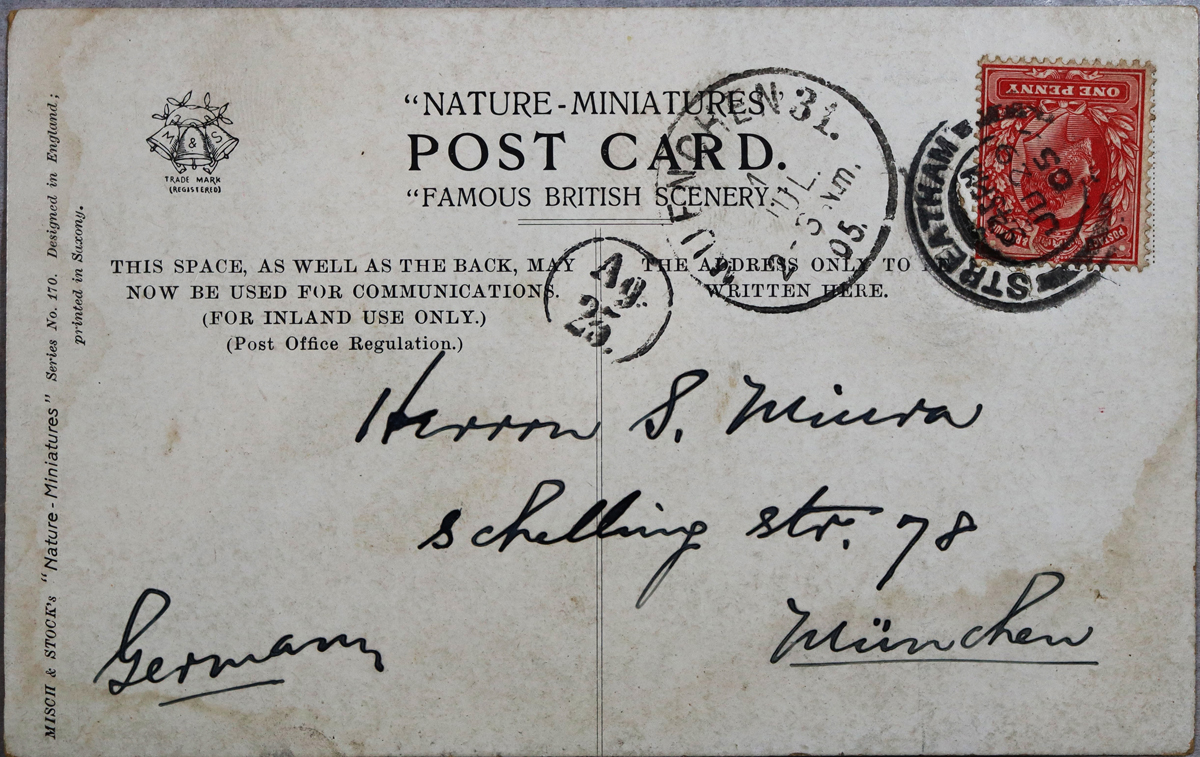 "NATURE-MINIATURES"
POST CARD.
"FAMOUS BRITISH SCENERY."
M & S
TRADE MARK
(REGISTERED)
THIS SPACE, AS WELL AS THE BACK, MAY
NOW BE USED FOR COMMUNICATIONS.
(FOR INLAND USE ONLY.)
(Post Office Regulation.)
THE ADDRESS ONLY TO
WRITTEN HERE.
MUENCHEN 31.
JUL.
05.
Ag.
25.
STREATHAM
JU
05
ONE PENNY
POSTAGE
Herrn S. Miura
Schelling str. 78
München
Germany
MISCH & STOCK's "Nature-Miniatures" Series No. 170. Designed in England;
printed in Saxony.